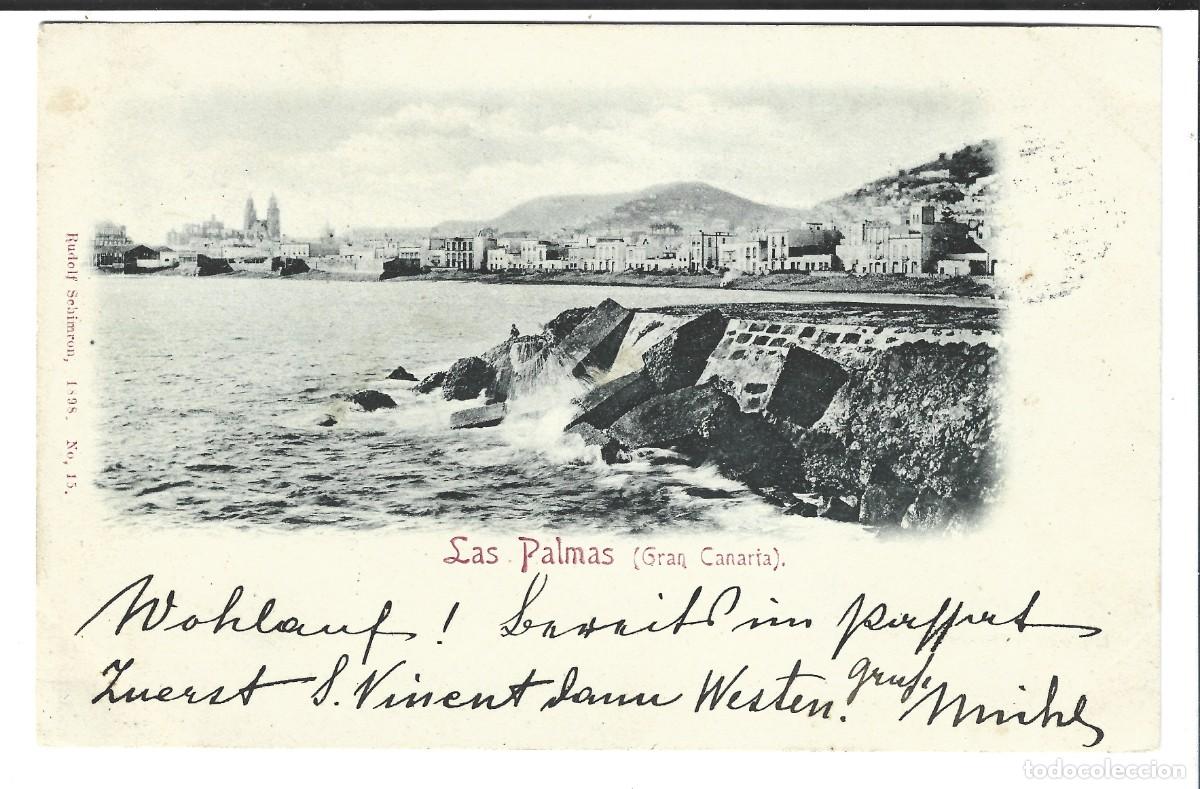 Rudolf Schimron, 1898. No, 15.
Las Palmas (Gran Canaria).
Wohlauf! Bereits im Passat
Zuerst S. Vincent dann Westen. Gruß
todocoleccion